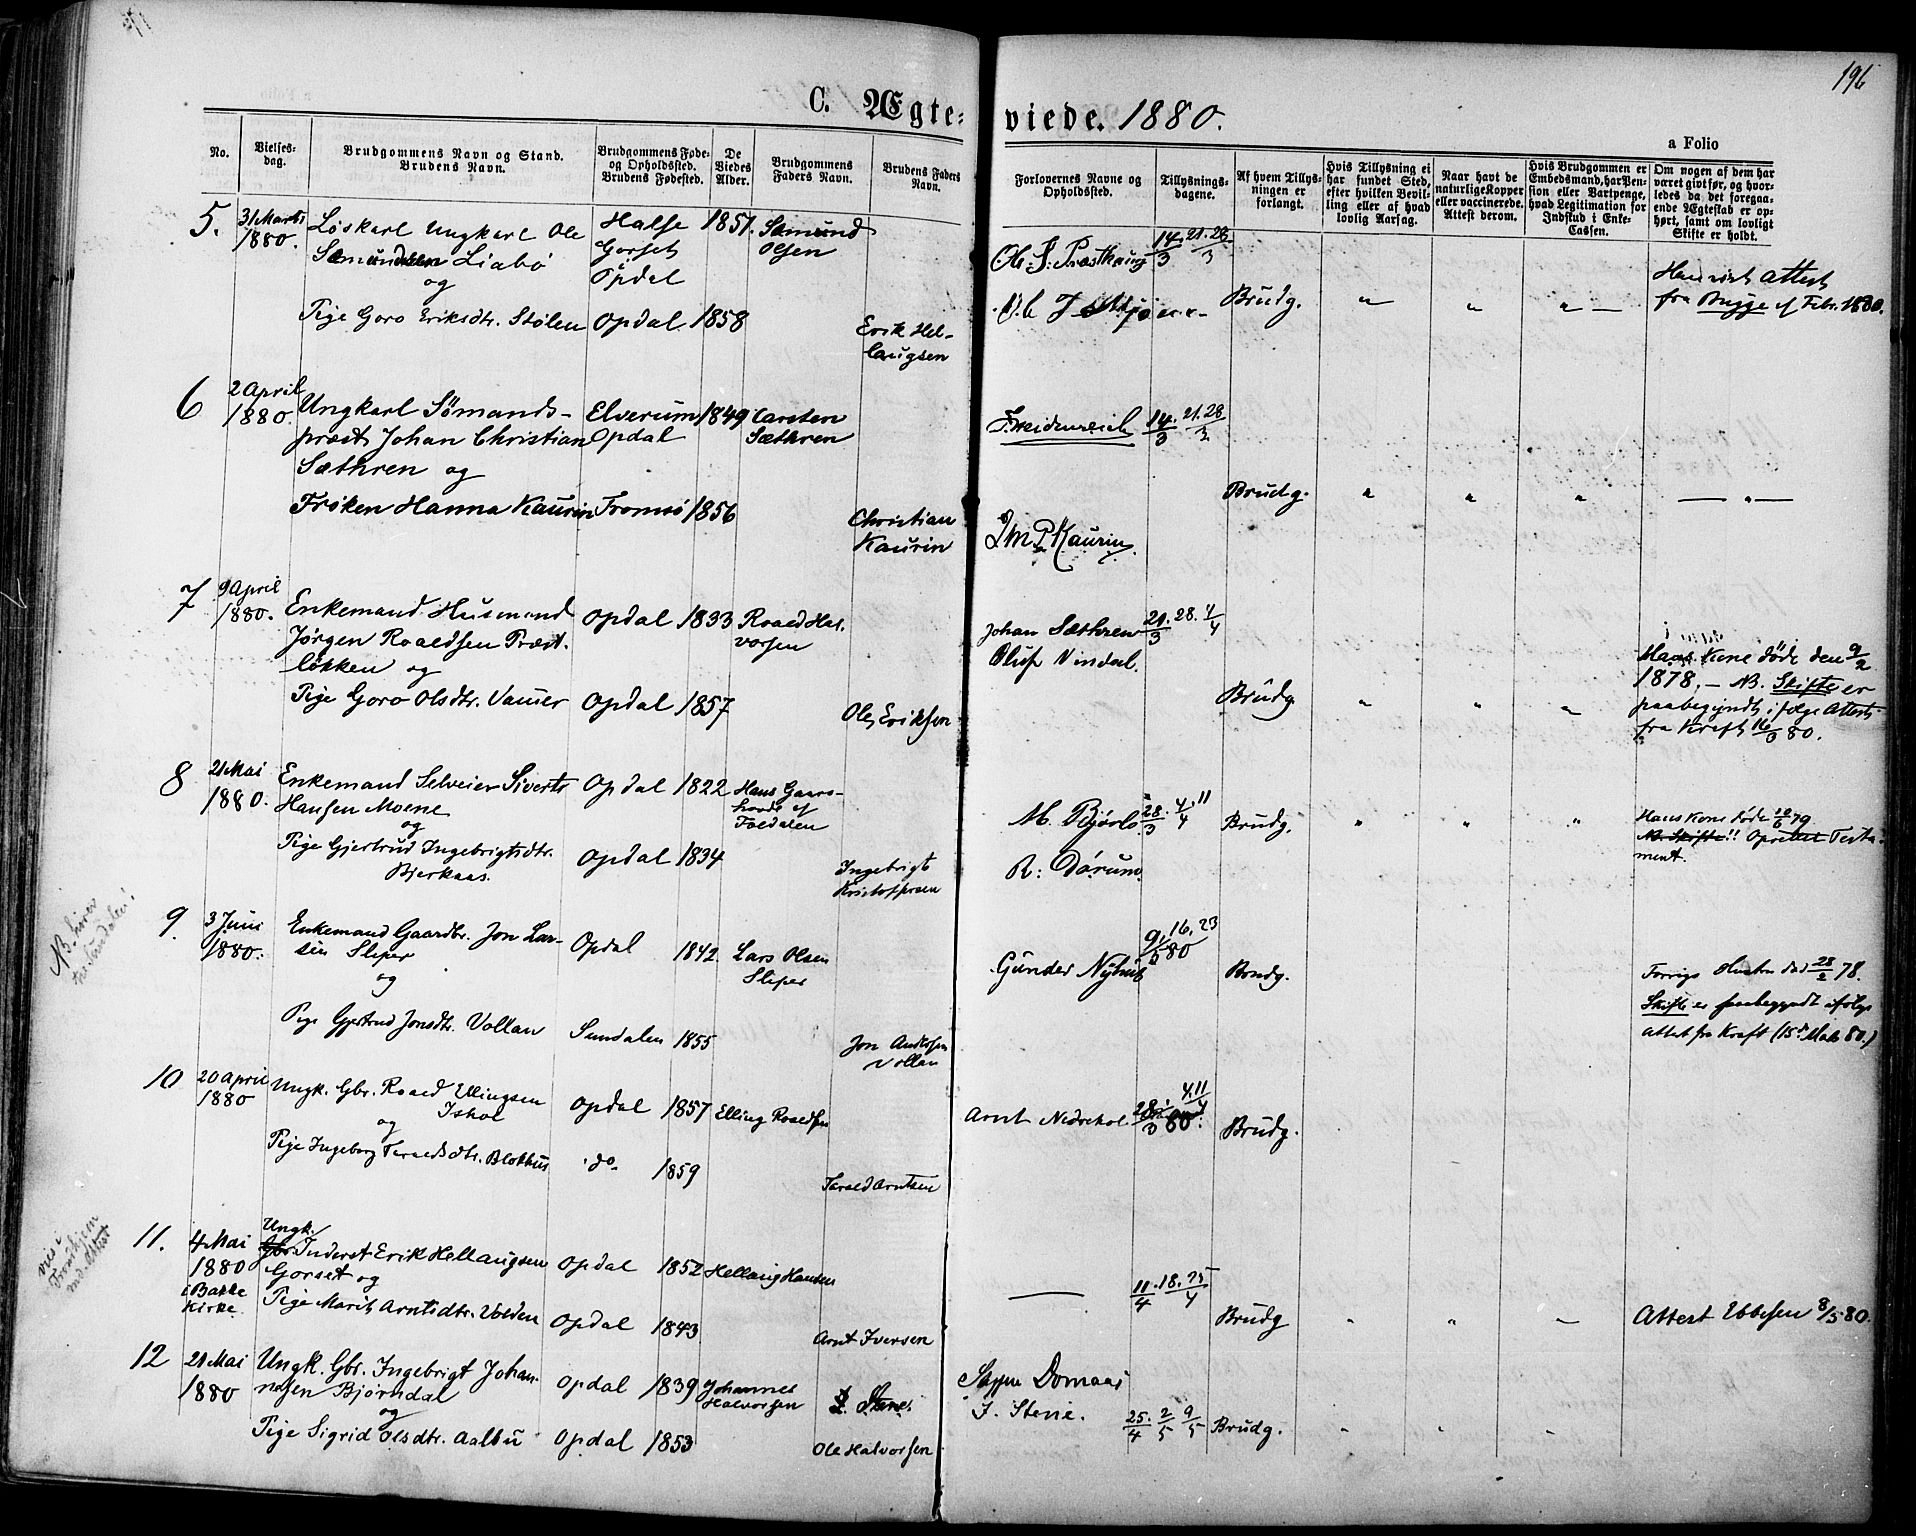 196
C. Ægte-
viede. 1880.
a Folio
No.
Vielses-
dag.
Brudgommens Navn og Stand.
Brudens Navn.
Brudgommens Føde-
og Opholdssted.
Brudens Fødested.
De
Viedes
Alder.
Brudgommens
Faders Navn.
Brudens Faders
Navn.
Forlovernes Navne og
Opholdssted.
Tillysnings-
dagene.
Af hvem Tillys-
ningen er
forlangt.
Hvis Tillysning ei
har fundet Sted,
efter hvilken Bevil-
ling eller af hvad
lovlig Aarsag.
Naar havt de
naturlige Kopper
eller vaccinerede.
Attest derom.
Hvis Brudgommen er
Embedsmand, har Pen-
sion eller Vartpenge,
hvad Legitimation for
Indskud i Enke-
Cassen.
Om nogen af dem har
været gift før, og hvor-
ledes da det foregaa-
ende Ægteskab er op-
hørt, samt om lovligt
Skifte er holdt.
5.
31 Marts
1880.
Løskarl Ungkarl Ole
Samundsen Liabø
og
Pige Goro Eriksdtr. Stølen
Halse
Gorset
Opdal
Opdal
1851.
1858
Samund
Olsen
Erik Hel-
laugsen
Ole S. Præsthaug
14/3 21. 28/3
Brudg.
" " "
Attest
fra Bugge af Febr. 1880.
6
2 April
1880.
Ungkarl Sømands-
præst Johan Christian
Sæthren og
Frøken Hanna Kaurin
Elverum
Opdal
Tromsø
1849
1856
Carsten
Sæthren
Christian
Kaurin
J M P Kaurin
14/3 21. 28/3
Brudg.
" " "
— " —
7
9 April
1880.
Enkemand Husmand
Jørgen Roaldsen Præst-
løkken og
Pige Goro Olsdtr. Vammer
Opdal
Opdal
1833
1857
Roald Hal-
vorsen
Ole Eriksen
Johan Sæthren
Oluf Vindal.
21/3. 28. 4/4
Brudg.
" " "
Hans Kone døde den 9/2
1878. — NB. Skifte er
paabegyndt ifølge Attest
fra Kraft 16/3 80.
8
21 Mai
1880.
Enkemand Selveier Sivert
Hansen Moene
og
Pige Gjertrud Ingebrigtsdtr.
Bjerkaas.
Opdal
Opdal
1822
1834
Hans Gaars-
hovde af
Foldalen
Ingebrigt
Kristoffersen
M. Bjørlo
R: Dørum
28/3. 4/4. 11
Brudg.
" " "
Hans Kone døde 79.
NB. Skifte!! Oprettet Testa-
ment.
9.
3 Juni
1880.
NB. hører
til Sundalen!
Enkemand Gaardbr. Jon Lar-
sen Sliper
og
Pige Gjertrud Jonsdtr. Vollan
Opdal
Sundalen
1842.
1855
Lars Olsen
Sliper
Jon Anderssen
Vollan
Gunder Nyhus
9. 16. 23/5 80
Brudg.
Forrige Hustru død 28/2 78.
Skifte er paabegyndt ifølge
Attest fra Kraft (15de Mah 80.)
10
20 April
1880
Ungk. Gbr. Roald Ellingsen
Ishol
og
Pige Ingeborg Taraldsdtr. Blokhus
Opdal
do
1857
1859
Elling Roaldsen
Tarald Arntsen
Arnt Nedrehol
28/3 4. 11/4 80.
Brudg.
11.
4 Mai
1880
i Bakke
Kirke
viet i
Trondhjem
med Attest
Ungk.
Gbr. Inderst Erik Hellaugsen
Gorset og
Pige Marit Arntsdtr. Volden
Opdal
Opdal
1852
1843
Hellaug Hansen
Arnt Iversen
—
11/4. 18. 25/4
Brudg
" " "
Attest Ebbesen 8/5 80.
12
21 Mai
1880
Ungk. Gbr. Ingebrigt Johan-
nesen Bjørndal
og
Pige Sigrid Olsdtr. Aalbu
Opdal
Opdal
1839
1853
Johannes
Halvorsen
Ole Halvorsen
Domaas
J. Stene.
25/4. 2/5 9/5
Brudg.
" " "